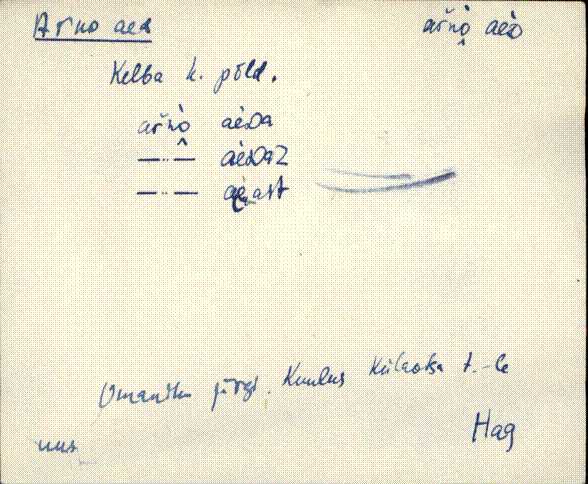 Arno aed ařnò aèᴅ
Kelba k. põld.
ařnò aèᴅa
—..— aèᴅaz
—..— aèast
Omaniku järgi. Kuulus Külaotsa t.-le
Hag
uus